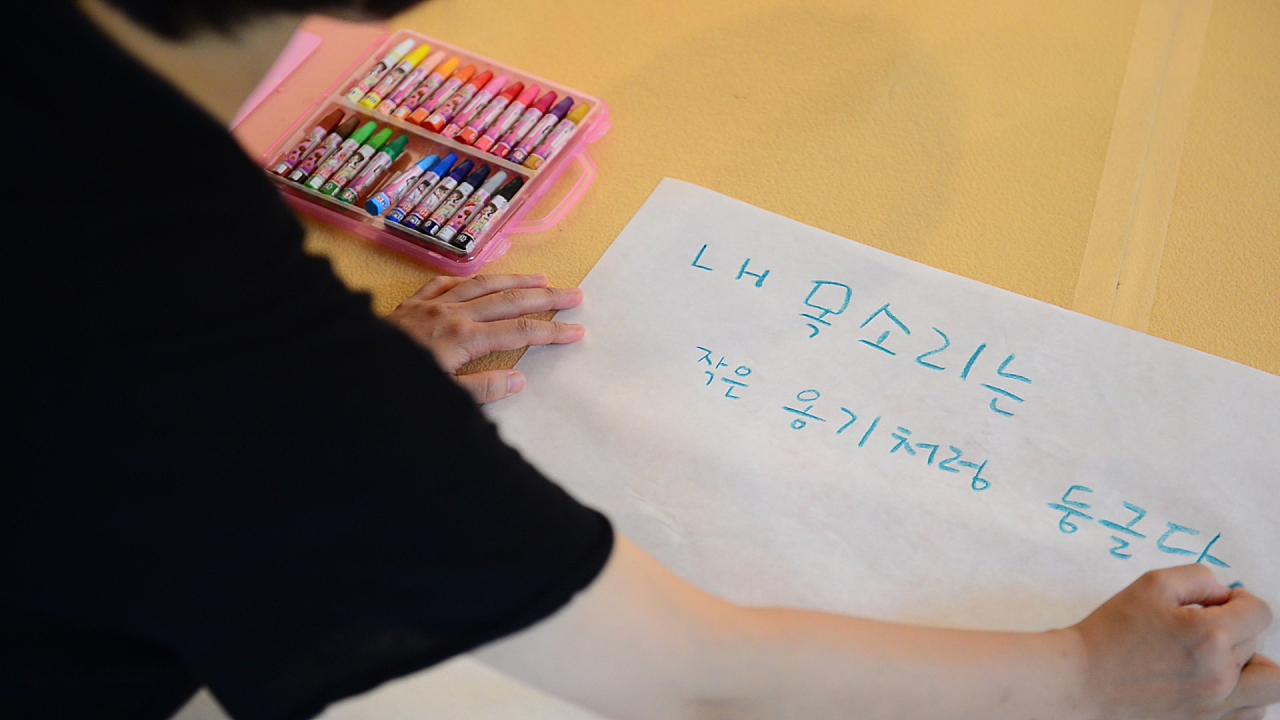 내 목소리는
작은 옹기처럼 둥글다